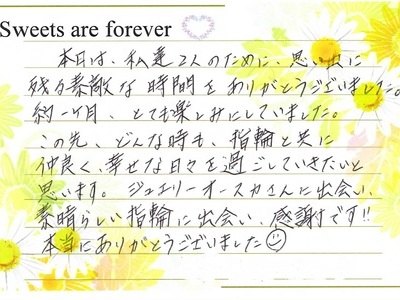 Sweets are forever
本日は、私達2人のために、思い出に
残る素敵な時間をありがとうございました。
約一ヶ月、とても楽しみにしていました。
この先、どんな時も、指輪と共に
仲良く、幸せな日々を過ごしていきたいと
思います。ジュエリーオースカさんに出会い、
素晴らしい指輪に出会い、感謝です!!
本当にありがとうございました☺